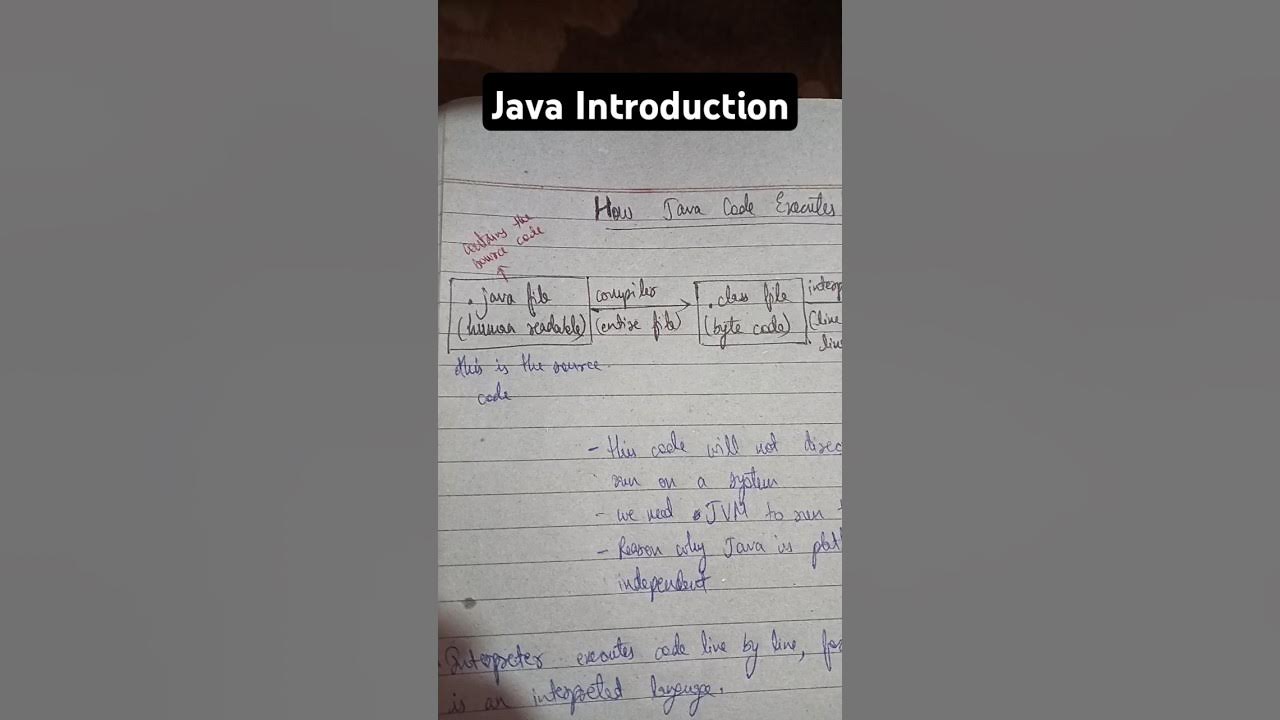 Java Introduction
How Java Code Executes
contains the
source code
.java file
(human readable)
compiler
(entire file)
.class file
(byte code)
interp
(line
line
this is the source
code
- this code will not direc
run on a system
- we need JVM to run t
- Reason why Java is plat
independent
Interpreter executes code line by line, for
is an interpreted language.